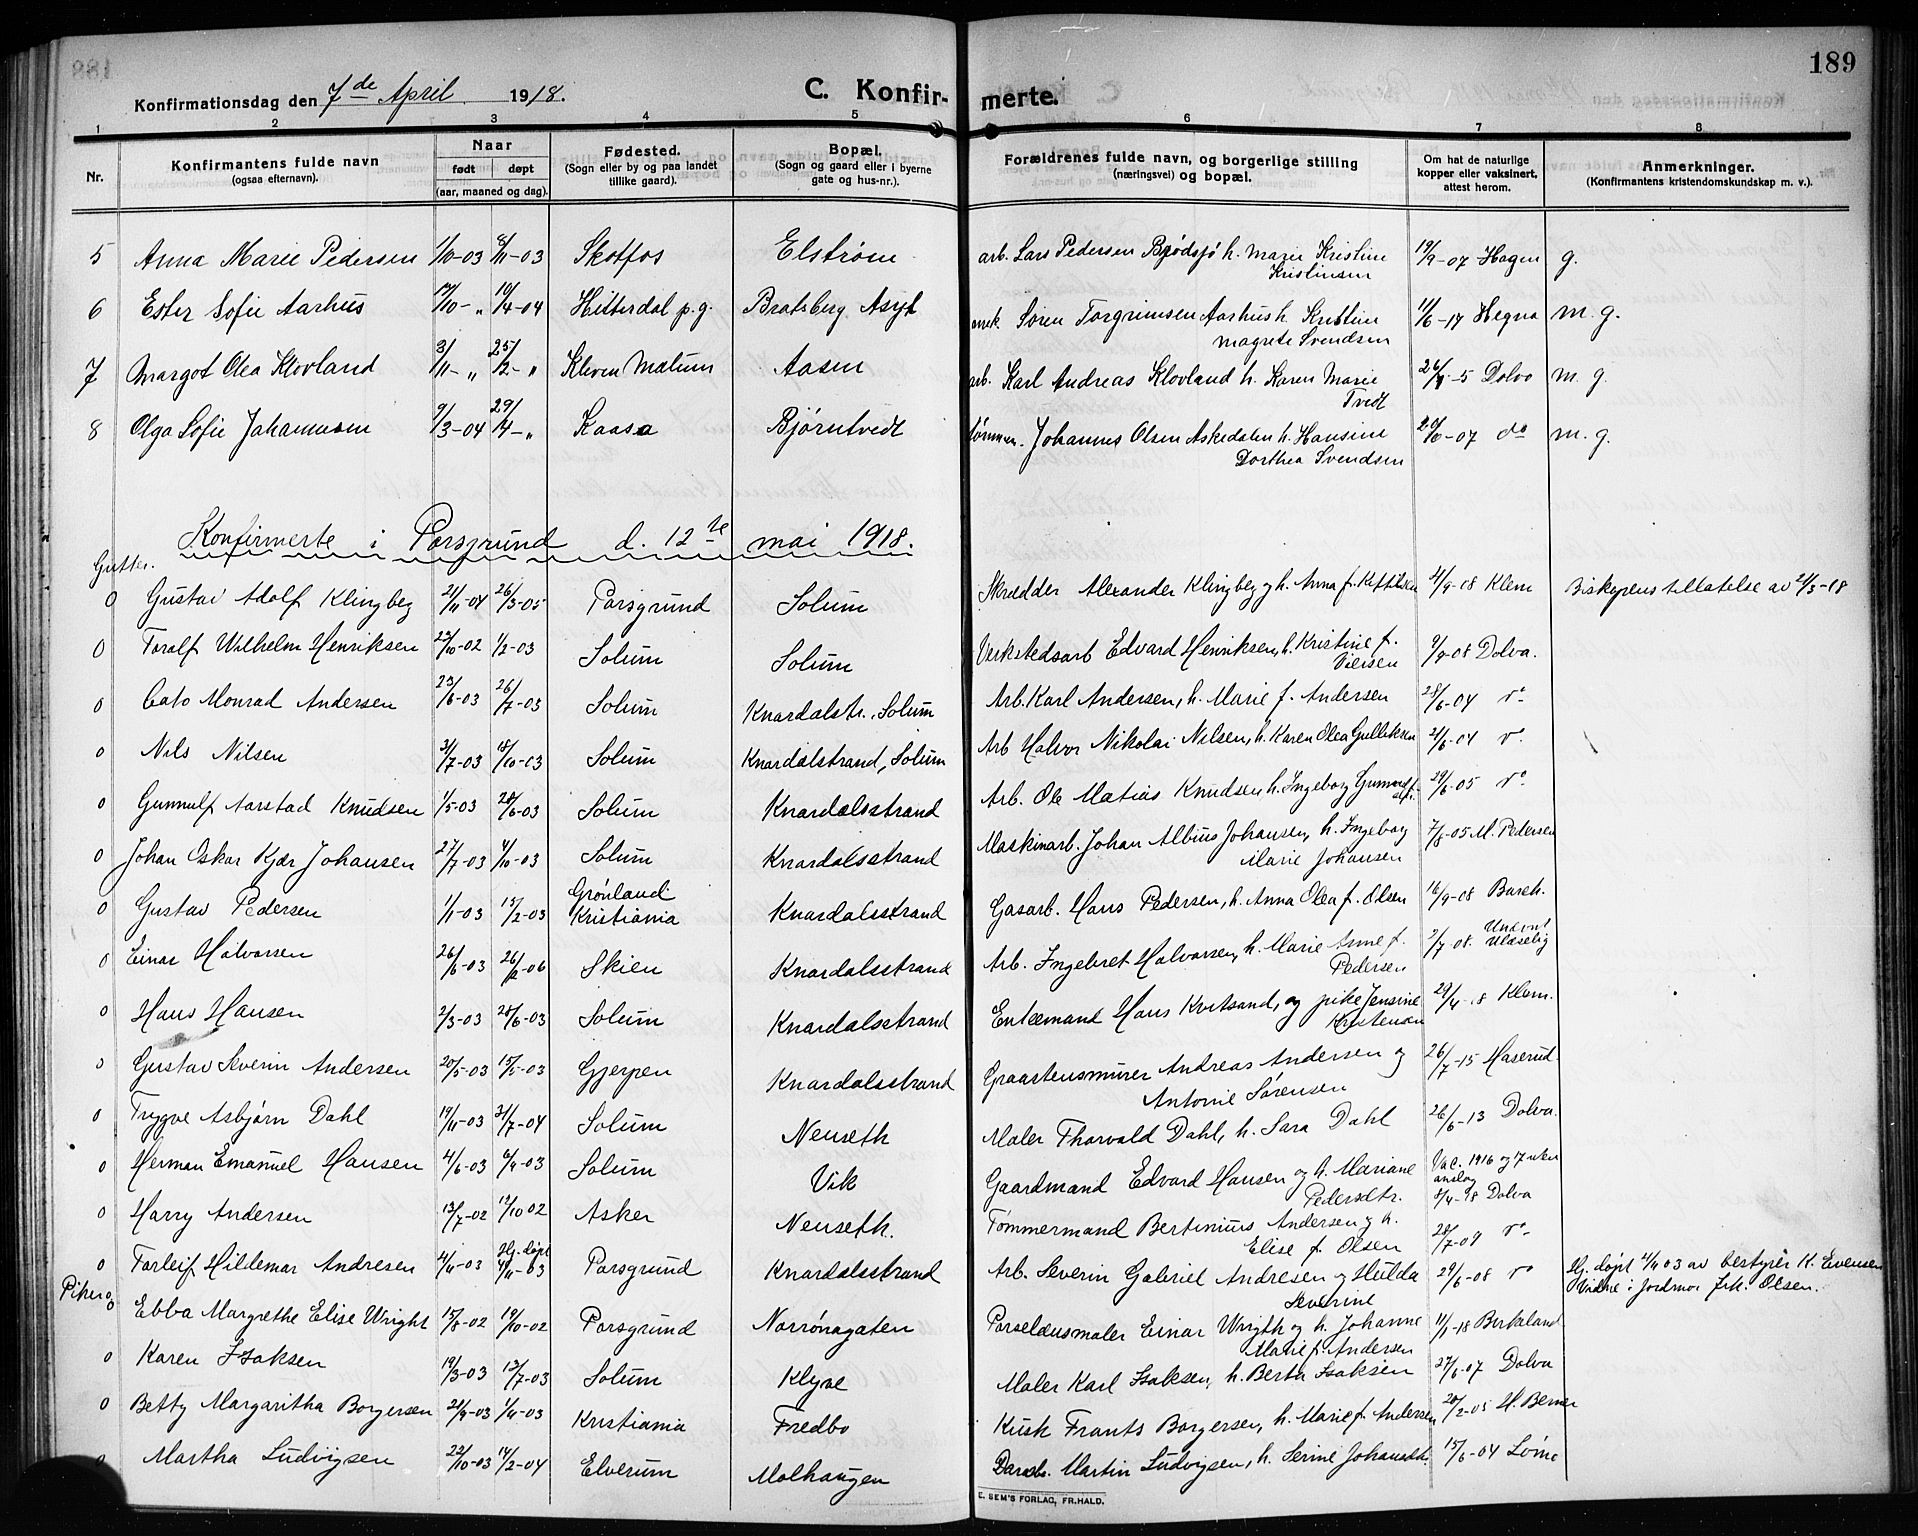 189
Konfirmationsdag den 7de April 1918.
C. Konfir-merte.
1 2 3 4 5 6 7 8
Nr.
Konfirmantens fulde navn
(ogsaa efternavn).
Naar
født døpt
(aar, maaned og dag).
Fødested.
(Sogn eller by og paa landet
tillike gaard).
Bopæl.
(Sogn og gaard eller i byerne
gate og hus-nr.).
Forældrenes fulde navn, og borgerlige stilling
(næringsvei) og bopæl.
Om hat de naturlige
kopper eller vaksinert,
attest herom.
Anmerkninger.
(Konfirmantens kristendomskundskap m. v.).
5 Anna Marie Pedersen 1/10-03 8/11-03 Skotfos Elstrøm arb. Lars Pedersen Brødsjø h. Marie Kristine 19/9-07 Hagen g.
Kristinsen
6 Ester Sofie Aarhus 17/10-„ 10/4-04 Hitterdal p.g. Bratsberg Asyl mek. Søren Torgrimsen Aarhus h. Kristine 11/6-17 Hegna m. g.
Magrete Svendsen
7 Margot Olea Klovland 3/11-„ 25/2-„ Kleven Mælum Aasen arb. Karl Andreas Klovland h. Karen Marie 26/9-5 Dolva m. g.
Tvedt
8 Olga Sofie Johannesen 9/3-04 29/4-„ Kaasa Bjørntvedt tømmerm. Johannes Olsen Askedalen h. Hansine 20/10-07 do m. g.
Dorthea Svendsen
Konfirmerte i Porsgrund d. 12te mai 1918.
Gutter.
0 Gustav Adolf Klingbeg 21/11-04 26/3-05 Porsgrund Solum Skredder Alexander Klingbeg og h. Anna f. Kittilsen 4/9-08 Klem Biskopens tillatelse av 21/3-18
0 Toralf Wilhelm Henriksen 22/10-02 1/2-03 Solum Solum Verkstedsarb Edvard Henriksen, h. Kristine f. 9/9-08 Dolva.
Vœrsen
0 Cato Monrad Andersen 23/6-03 26/7-03 Solum Knardalstr., Solum Arb. Karl Andersen, h. Marie f. Andersen 28/6-04 do
0 Nils Nilsen 31/7-03 18/10-03 Solum Knardalstrand, Solum Arb Halvor Nikolai Nilsen, h. Karen Olea Gulliksen 21/6-04 do
0 Gunnulf Aarstad Knudsen 1/5-03 28/6-03 Solum Knardalsstrand Arb. Ole Matias Knudsen h. Ingeborg 29/6-05 do
0 Johan Oskar Kjær Johansen 27/7-03 4/10-03 Solum Knardalsstrand Maskinarb. Johan Albius Johansen, h. Ingeborg 7/8-05 M. Pedersen
Marie Johansen
0 Gustav Pedersen 1/1-03 15/2-03 Grønland Kristiania Knardalsstrand Gasarb. Hans Pedersen, h. Anna Olea f. Olsen 16/9-08 Barth.
0 Einar Halvorsen 26/6-03 26/-06 Skien Knardalsstrand Arb. Ingebret Halvorsen, h. Marie Anne f. 2/7-08. Ulæselig
Pedersen
0 Hans Hansen 2/3-03 28/6-03 Solum Knardalsstrand Enkemand Hans Kvitsand, og pike Jensine 29/4-18 Klem.
Kristensen
0 Gustav Severin Andersen 20/5-03 15/-03 Gjerpen Knardalsstrand Graastensmurer Andreas Andersen og 26/7-15 Haserud
Antonie Sørensen
0 Trygve Asbjørn Dahl 19/11-03 31/7-04 Solum Nenseth Maler Thorvald Dahl, h. Sara Dahl 26/6-13 Dolva
0 Herman Emanuel Hansen 4/6-03 6/9-03 Solum Vik Gaardmand Edvard Hansen og h. Mariane Vac. 1916 og 7 uten
Pedersdtr. anslag 8/4-18 Dolva
0 Harry Andersen 13/7-02 12/10 02 Asker Nenseth. Tømmermand Bertinius Andersen og h. 28/7-09 do
Elise f. Olsen
0 Torleif Hildemar Andresen 4/11-03 Hj. døpt 4/11-03 Porsgrund Knardalsstrand Arb. Severin Gabriel Andresen og Hulda 29/6-08 do Hj. døpt 4/11 03 av bestyrer K. Evensen
Severine Vidne: Jordmor frk. Olsen.
Piker
0 Ebba Margrethe Elise Wright 15/8-02 19/10-02 Porsgrund Norrønagaten Porselænsmaler Einar Wrigth og h. Johanne 11/1-18 Birkeland
Marie f. Andersen
0 Karen Isaksen 19/3-03 12/7-03 Solum Klyve Maler Karl Isaksen, h. Berta Isaksen 27/6-07 Dolva
0 Betty Margaritha Borgersen 21/9-03 1/11-03 Kristiania Fredbo Kusk Frants Borgersen, h. Marie f. Andersen 20/2-05 H. Berner
0 Martha Ludvigsen 22/10-03 14/2-04 Elverum Molhaugen Martin Ludvigsen, h. Serine Johansdtr. 15/6-04 Lømo
E. SEM'S FORLAG, FR.HALD.